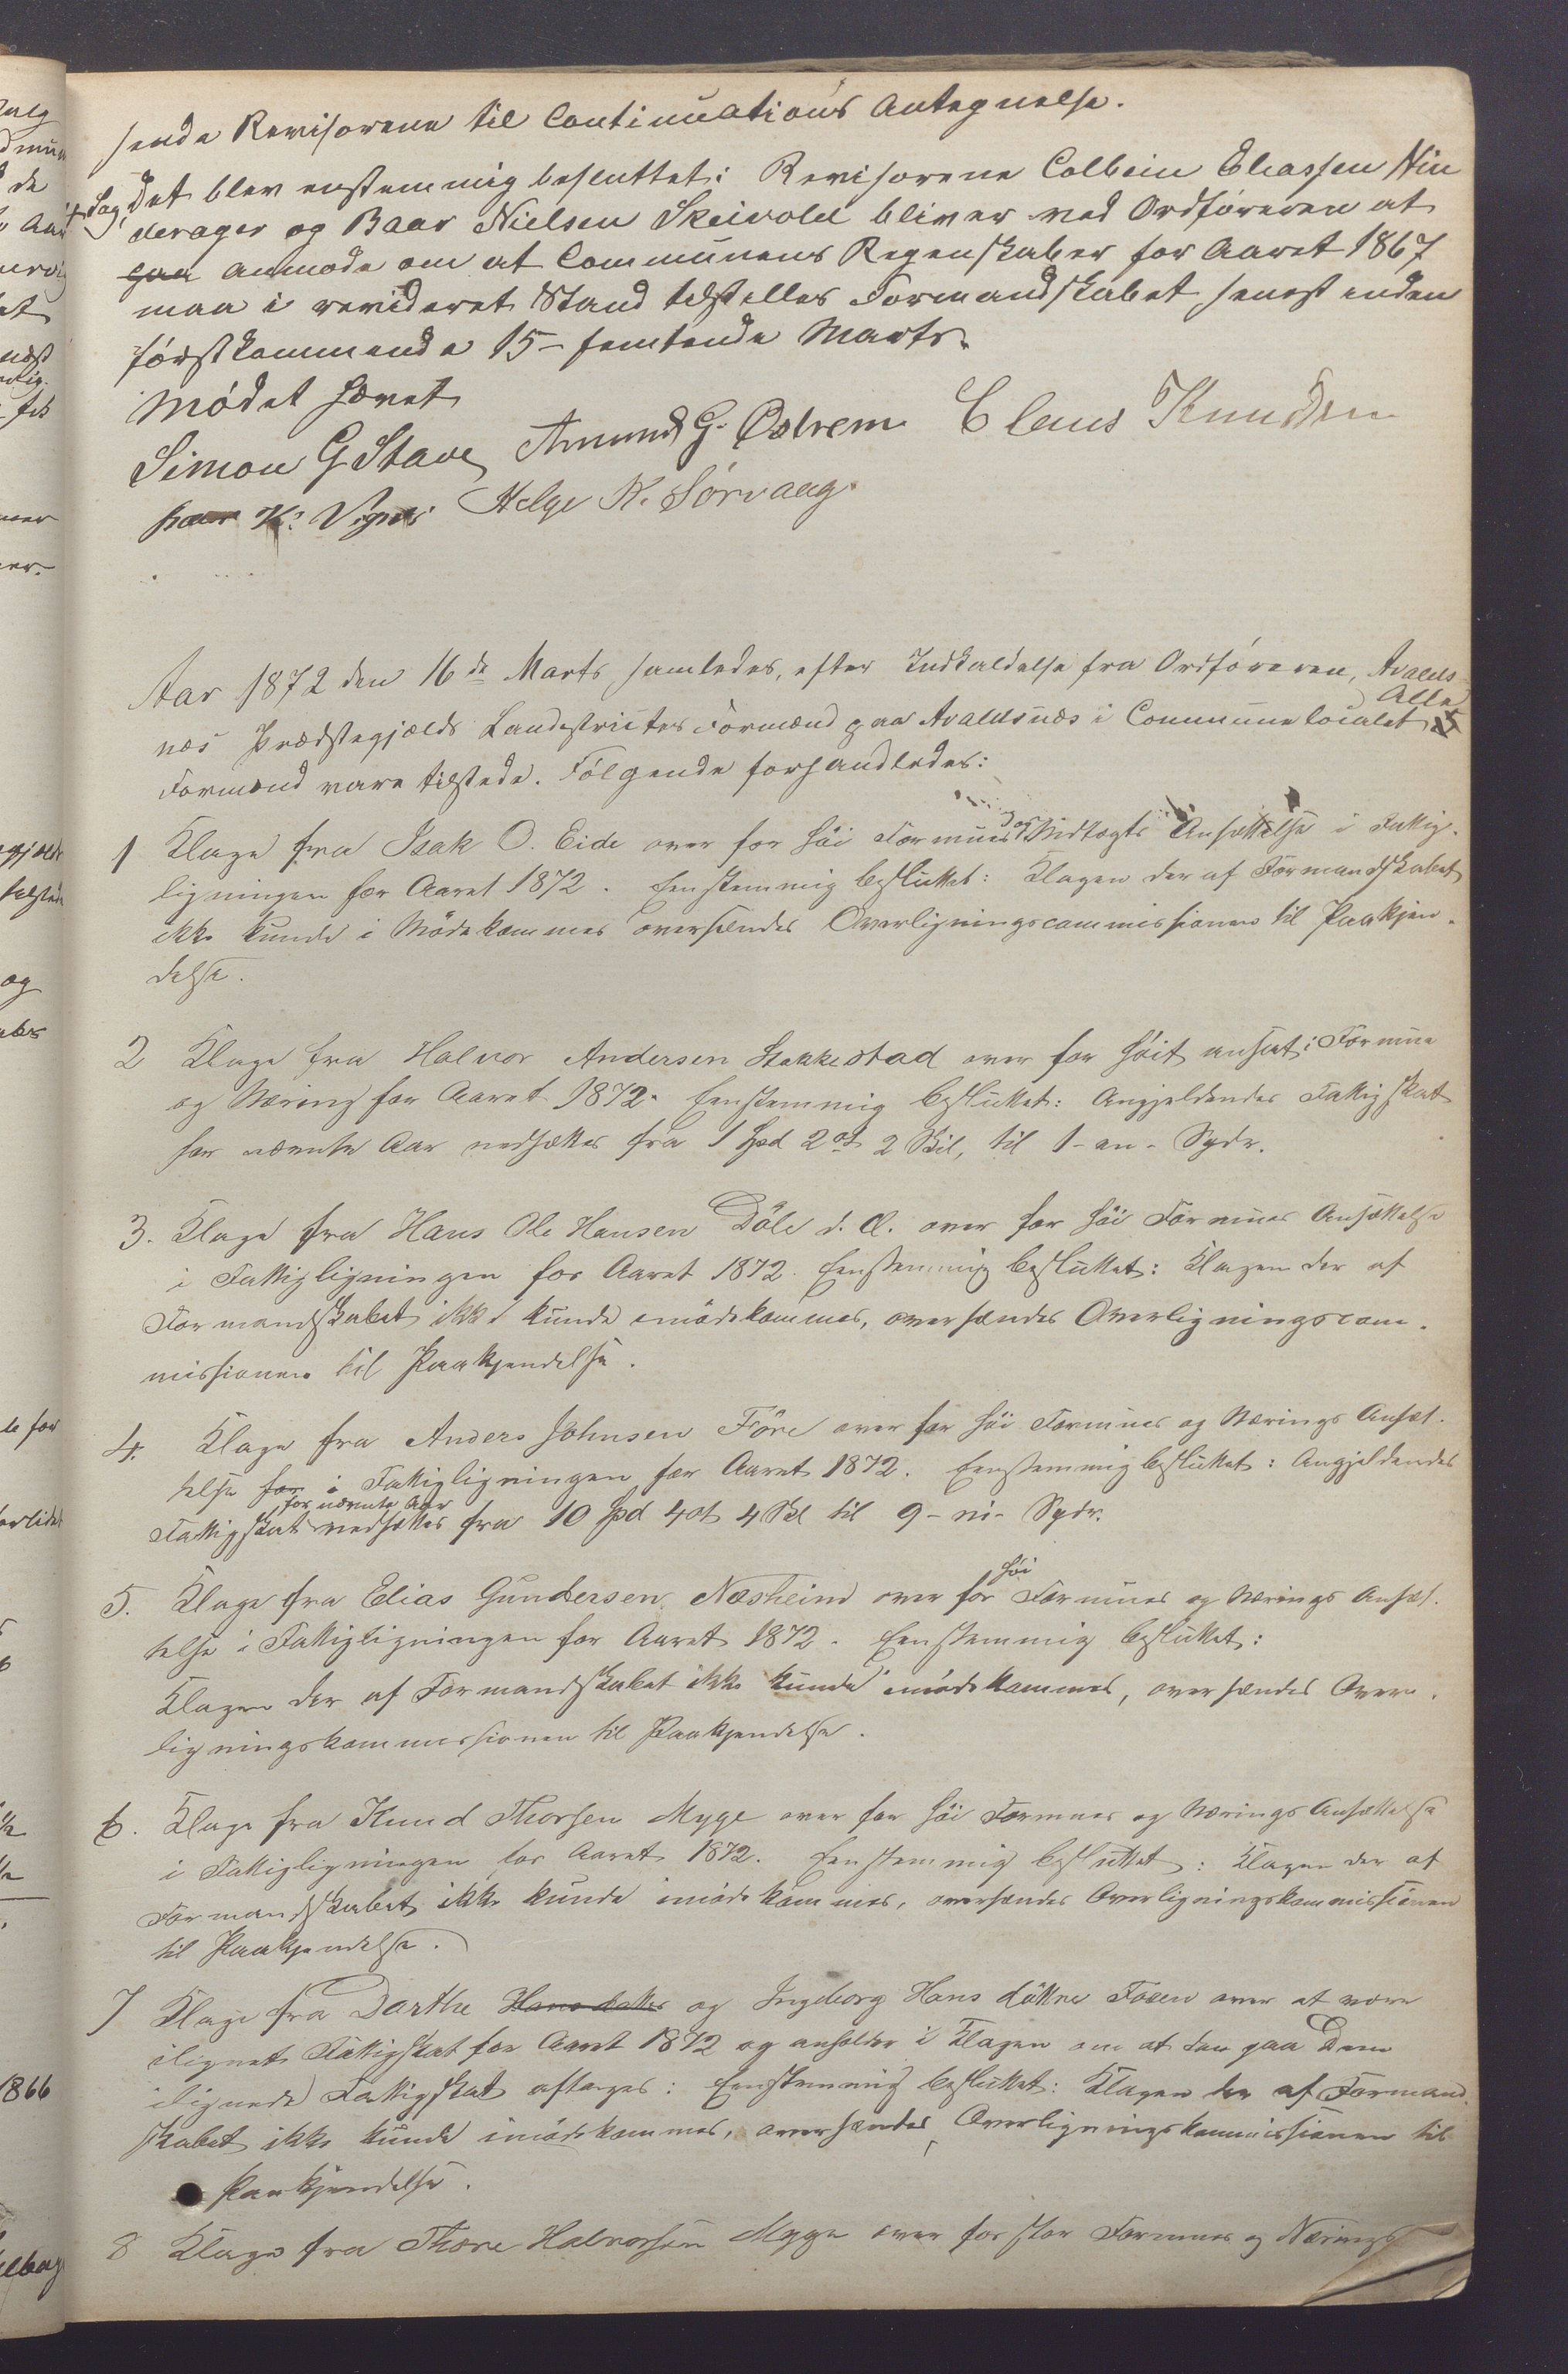 sende Revisorene til Continuations Antegnelse.
Sag, Det blev enstemmig besluttet: Revisorene Colbein Eliassen Vin
deragar og Baar Nielsen Skeivold bliver ved Ordføreren at
gaa anmode om at Communens Regenskaber for Aaret 1867
maa i revideret Stand tilstilles Formandskabet, senest inden
førstkommende 15 – femtende Marts.
Mødet hævet
Simon G Stave Amund G. Østrem Claus Knudsen
K. Helge K. Sørvaag.
Aar 1872 den 16de Marts samledes, efter Indkaldelse fra Ordføreren, Avalds
næs Prædstegjælds Landdistricts Formænd paa Avaldsnæs i Communelocalet, Alle
Formænd vare tilstede. Følgende forhandledes:
1 Klage fra Isak O. Eide over for høi Formues og Indtægts Ansættelse i Fattig-
ligningen for Aaret 1872. Eenstemmig besluttet: Klagen der af Formandskabet
ikke kunde i Mødekommes oversendes Overligningscommissionen til Paakjen-
delse.
2 Klage fra Halvor Andersen Stakkestad over for høit ansat i Formue
og Næring for Aaret 1872. Eenstemmig besluttet: Angjeldendes Fattigskat
for nævnte Aar nedsættes fra 1 Spd 2 ort 2 Skil, til 1 - en - Spdr.
3. Klage fra Hans Ole Hansen Døle d. Æ. over for høi Formues Ansættelse
i Fattigligningen for Aaret 1872. Eenstemmig besluttet: Klagen der af
Formandskabet ikke kunde imødekommes, oversændes Overligningscom-
missionen til Paakjendelse.
4. Klage fra Anders Johnsen Føre over for høi Formues og Nærings Ansæt-
telse for i Fattigligningen for Aaret 1872. Eenstemmig besluttet: Angjeldendes
Fattigskat for nævnte Aar nedsættes fra 10 Spd 4 ort 4 Skl til 9 - ni - Spdr.
5. Klage fra Elias Gundersen Næsheim over for høi Formues og Nærings Ansæt-
telse i Fattigligningen for Aaret 1872. Eenstemmig besluttet:
Klagen der af Formandskabet ikke kunde imødekommes, oversændes Over-
ligningskommissionen til Paakjendelse.
6. Klage fra Knud Thorsen Myge over for høi Formues og Nærings Ansættelse
i Fattigligningen for Aaret 1872. Eenstemmig besluttet: Klagen der af
Formandskabet ikke kunde imødekommes, oversændes Overligningskommissionen
til Paakjendelse.
7 Klage fra Dorthe Hansdatter og Ingeborg Hans døttre Fosen over at være
ilignet Fattigskat for Aaret 1872 og anholder i Klagen om at den paa Dem
ilignede Fattigskat aftages: Eenstemmig besluttet: Klagen der af Formand-
skabet ikke kunde imødekommes, oversændes Overligningskommissionen til
Paakjendelse.
8 Klage fra Thore Halvorsen Myge over for stor Formues og Nærings